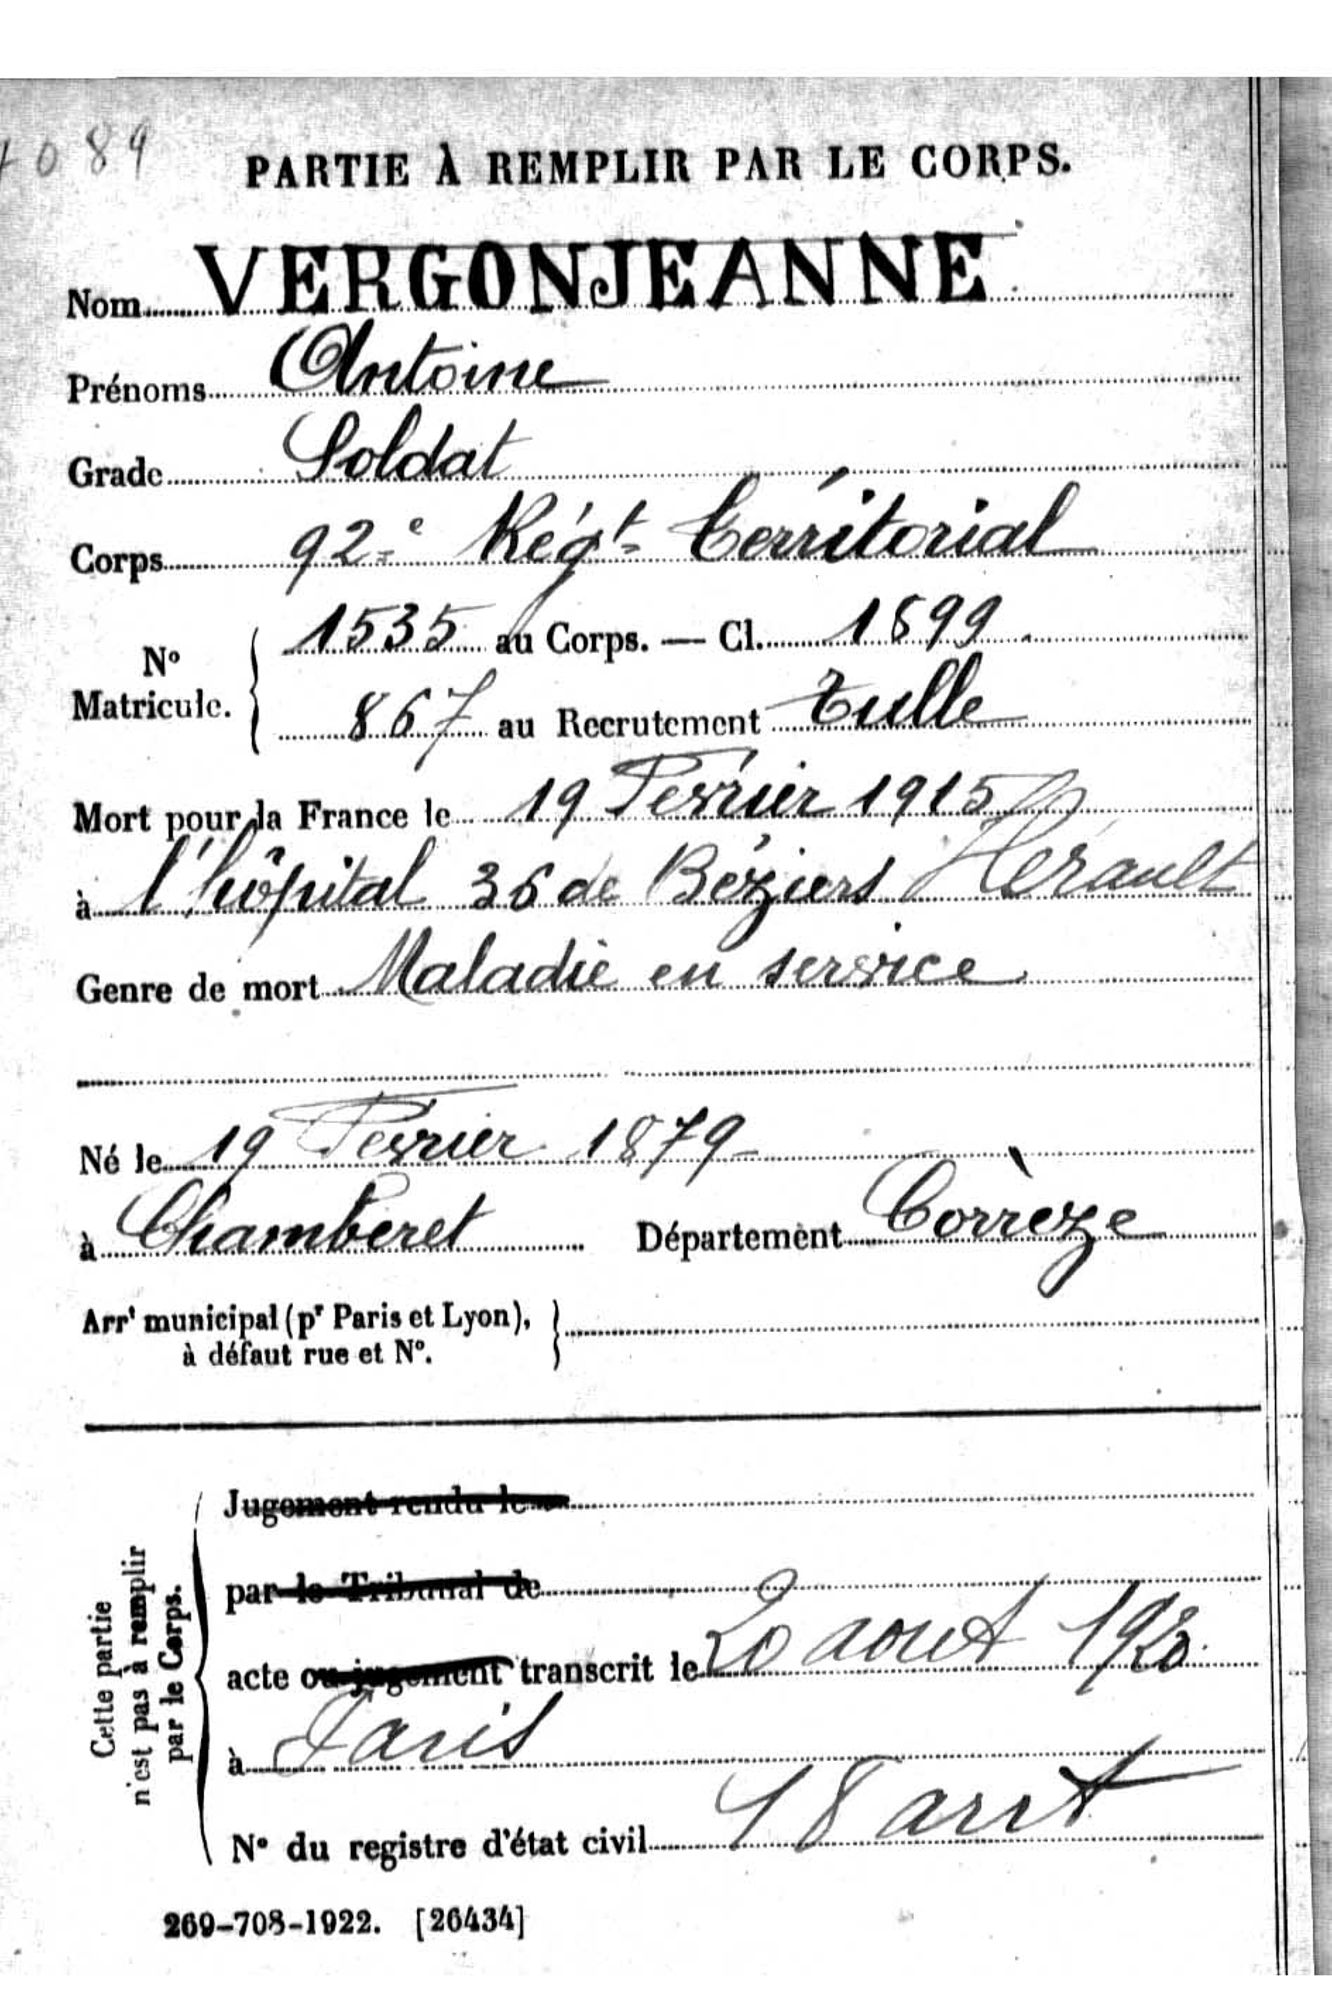 4089
PARTIE À REMPLIR PAR LE CORPS.
Nom VERGONJEANNE
Prénoms Antoine
Grade Soldat
Corps 92e Régt Térritorial
No Matricule. 1535 au Corps. — Cl. 1899
867 au Recrutement Tulle
Mort pour la France le 19 Février 1915
à l'hôpital 36 de Béziers Hérault
Genre de mort Maladie en service
Né le 19 Février 1879
à Chamberet Département Corrèze
Arrt municipal (pr Paris et Lyon),
à défaut rue et No.
Cette partie
n'est pas à remplir
par le Corps.
Jugement rendu le
par le Tribunal de
acte ou jugement transcrit le 20 aout 1920.
à Paris
No du registre d'état civil 18 arrt
269-708-1922. [26434]